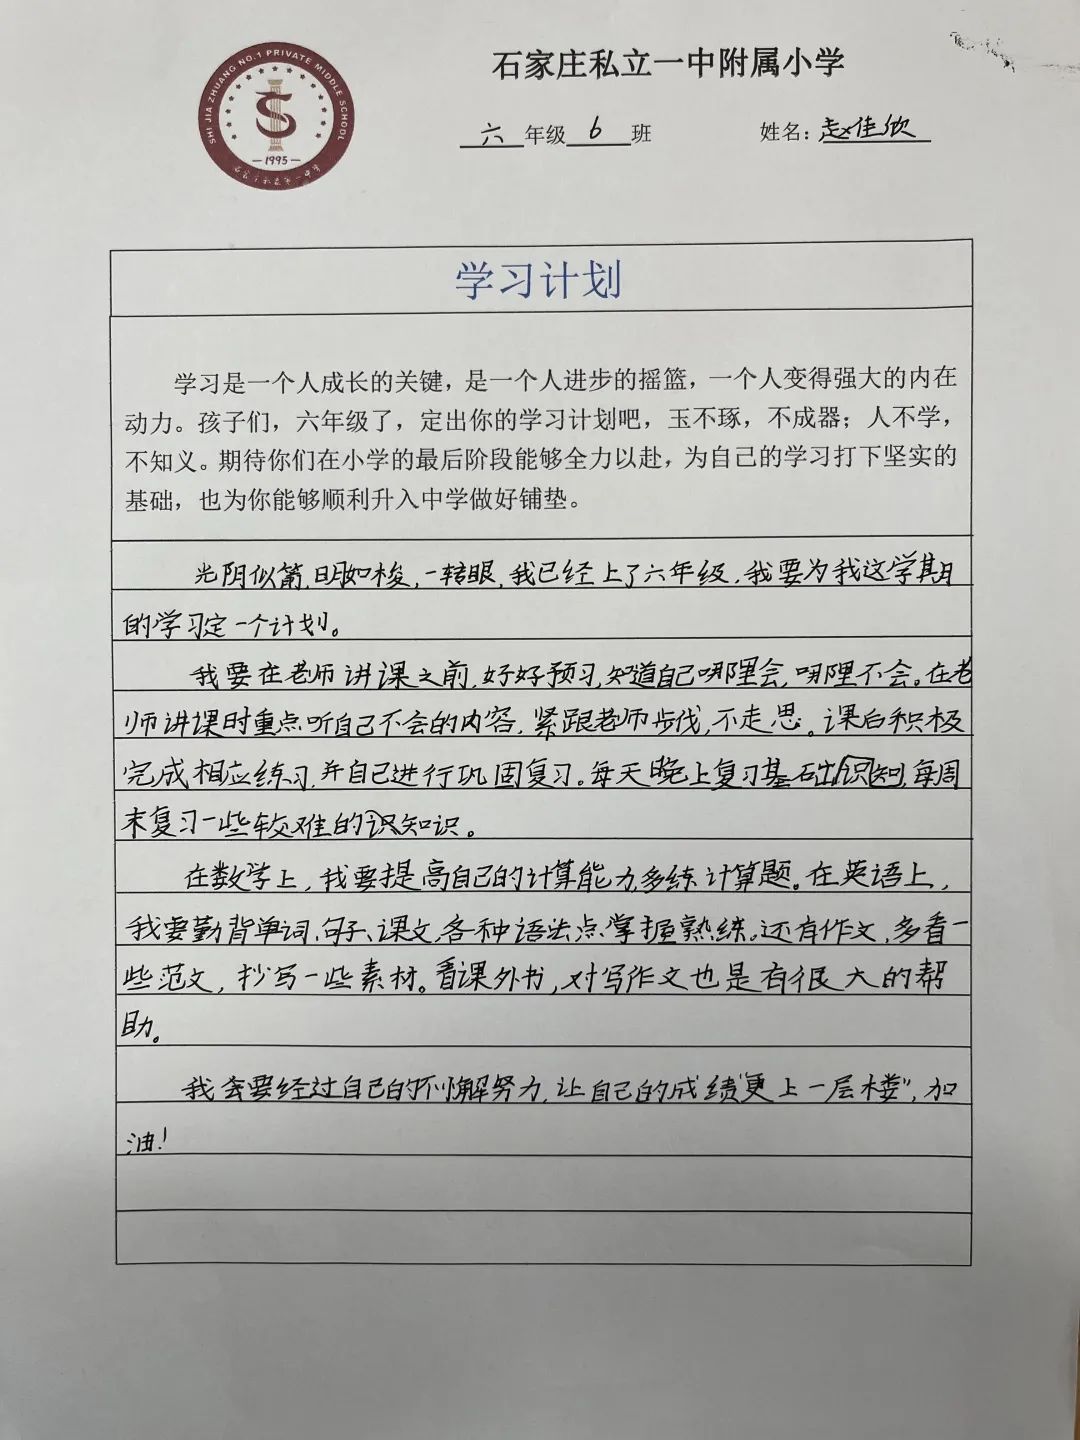 SHI JIA ZHUANG NO.1 PRIVATE MIDDLE SCHOOL
1995
石家庄私立一中附属小学
六年级6班 姓名：赵佳欣
学习计划
学习是一个人成长的关键，是一个人进步的摇篮，一个人变得强大的内在
动力。孩子们，六年级了，定出你的学习计划吧，玉不琢，不成器；人不学，
不知义。期待你们在小学的最后阶段能够全力以赴，为自己的学习打下坚实的
基础，也为你能够顺利升入中学做好铺垫。
光阴似箭，日月如梭，一转眼，我已经上了六年级，我要为我这学期
的学习定一个计划。
我要在老师讲课之前，好好预习，知道自己哪里会，哪里不会。在老
师讲课时重点听自己不会的内容，紧跟老师步伐，不走思。课后积极
完成相应练习，并自己进行巩固复习。每天晚上复习基础识知，每周
末复习一些较难的识知识。
在数学上，我要提高自己的计算能力，多练计算题。在英语上，
我要勤背单词、句子、课文，各种语法点掌握熟练。还有作文，多看一
些范文，抄写一些素材。看课外书，对写作文也是有很大的帮
助。
我会要经过自己的不懈努力，让自己的成绩“更上一层楼”，加
油！